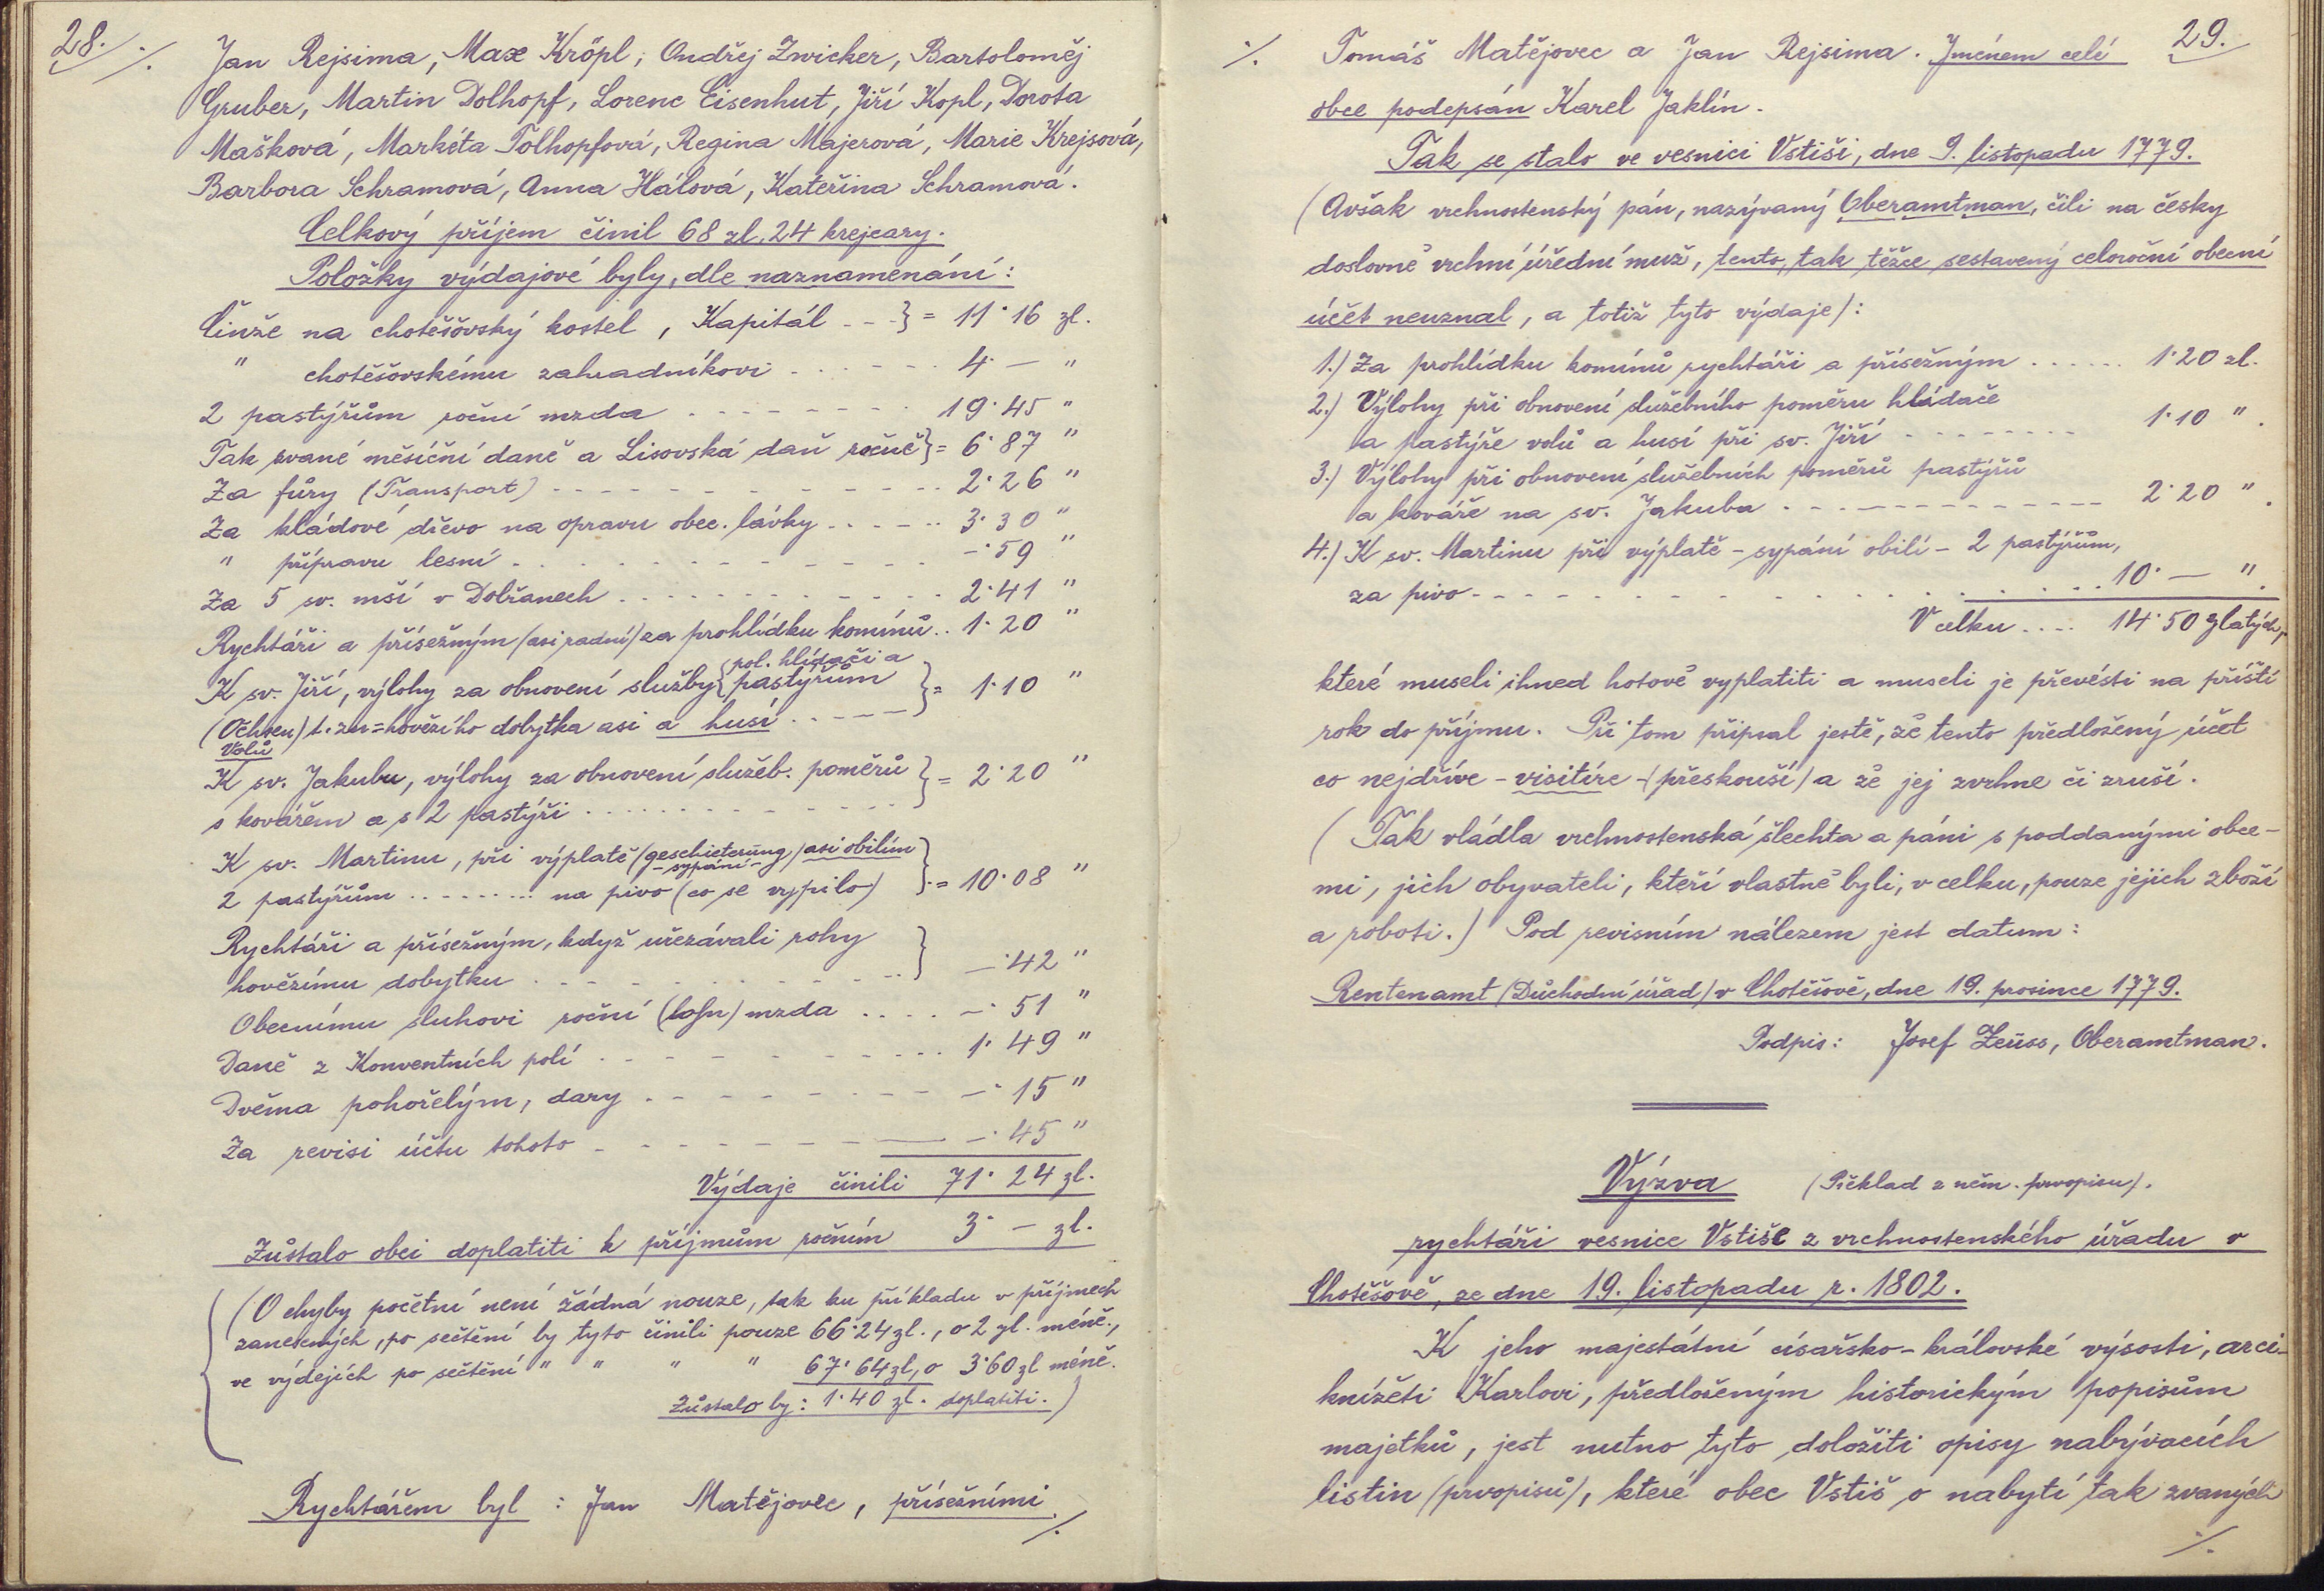 28. ⁒ Jan Rejsima, Max Kröpl, Ondřej Zwicker, Bartoloměj
Gruber, Martin Dolhopf, Lorenc Eisenhut, Jiří Kopl, Dorota
Mašková, Markéta Tolhopfová, Regina Majerová, Marie Krejsová,
Barbora Schramová, Anna Hálová, Kateřina Schramová.
Celkový příjem činil 68 zl. 24 krejcary.
Položky výdajové byly, dle naznamenání:
Činže na chotěšovský kostel, Kapitál - - -} = 11·16 zl.
" chotěšovskému zahradníkovi - - - - - - 4·— "
2 pastýřům roční mzda - - - - - - - - 19·45 "
Tak zvané měsíční daně a Lisovská daň ročně} = 6·87 "
Za fůry (Transport) - - - - - - - - - - - 2·26 "
Za kládové dřevo na opravu obec. lávky - - - - - 3·30 "
" přípravu lesní - - - - - - - - - - - -·59 "
Za 5 sv. mší v Dobřanech . . . . . . . . . . . 2·41 "
Rychtáři a přísežným (asi radní) za prohlídku komínů . . 1·20 "
pol. hlídači a
K sv. Jiří, výlohy za obnovení služby { pastýřům } = 1·10 "
(Ochsen) t. zn = hovězího dobytka asi a husí - - - - -
Volů
K sv. Jakubu, výlohy za obnovení služeb. poměrů } = 2·20 "
s kovářem a s 2 pastýři . . . . . . . . . .
K sv. Martinu, při výplatě (geschieterung) asi obilím
- sypání -
2 pastýřům . . . . . . . . . na pivo (co se vypilo) } = 10·08 "
Rychtáři a přísežným, když uřezávali rohy
hovězímu dobytku . - - - - . . . . . - - } —·42 "
Obecnímu sluhovi roční (lohn) mzda . . . . —·51 "
Daně z Konventních polí . - - - - - - - . . . . 1·49 "
Dvěma pohořelým, dary . - - - - - - - - —·15 "
Za revisi účtu tohoto - - - - - - - —·45 "
Výdaje činili 71·24 zl.
Zůstalo obci doplatiti k příjmům ročním 3·— zl.
(O chyby početní není žádná nouze, tak ku příkladu v příjmech
zanesených, po sečtění by tyto činili pouze 66·24 zl., o 2 zl. méně.,
ve výdejích po sečtění " " " " 67·64 zl, o 3·60 zl méně.
Zůstalo by: 1·40 zl. doplatiti.)
Rychtářem byl : Jan Matějovec, přísežními
⁒
29.
⁒ Tomáš Matějovec a Jan Rejsima. Jménem celé
obce podepsán Karel Jaklín.
Tak se stalo ve vesnici Vstiši, dne 9. listopadu 1779.
(Avšak vrchnostenský pán, nazývaný Oberamtman, čili na česky
doslovně vrchní úřední muž, tento, tak těžce sestavený celoroční obecní
účet neuznal, a totiž tyto výdaje):
1.) Za prohlídku komínů rychtáři a přísežným . . . . . . 1·20 zl.
2.) Výlohy při obnovení služebního poměru hlídače
a pastýře volů a husí při sv. Jiří - - - - - - - - 1·10 " .
3.) Výlohy při obnovení služebních poměrů pastýřů
a kováře na sv. Jakuba . - - - - - - - - - - - - 2·20 " .
4.) K sv. Martinu při výplatě - sypání obilí - 2 pastýřům,
za pivo - - - - - - - - - . . . . . . . . . 10·— " .
V celku . . . . 14·50 zlatých,
které museli ihned hotově vyplatiti a museli je převésti na příští
rok do příjmu. Při tom připsal ještě, že tento předložený účet
co nejdříve - visitíre - (přeskouší) a že jej zvrhne či zruší.
(Tak vládla vrchnostenská šlechta a páni s poddanými obce-
mi, jich obyvateli, kteří vlastně byli, v celku, pouze jejich zboží
a roboti.) Pod revisním nálezem jest datum:
Rentenamt (Důchodní úřad) v Chotěšově, dne 19. prosince 1779.
Podpis: Josef Zeüss, Oberamtman.
Výzva (Překlad z něm. prvopisu).
rychtáři vesnice Vstiše z vrchnostenského úřadu v
Chotěšově, ze dne 19. listopadu r. 1802.
K jeho majestátní císařsko-královské výsosti, arci-
knížeti Karlovi, předloženým historickým popisům
majetků, jest nutno tyto doložiti opisy nabývacích
listin (prvopisů), které obec Vstiš o nabytí tak zvaných
⁒